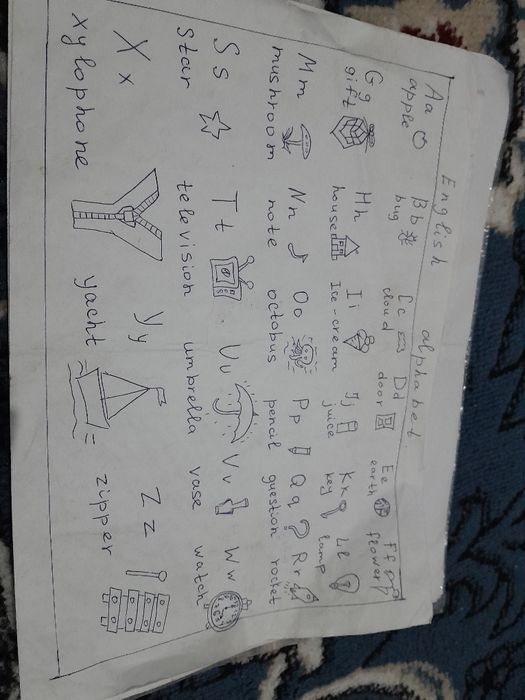 English alphabet
Aa Bb Cc Dd Ee Ff
apple bug cloud door earth flower
Gg Hh Ii Jj Kk Ll
gift house Ice-cream juice key lamp
Mm Nn Oo Pp Qq Rr
mushroom note octobus pencil question rocket
Ss Tt Uu Vv Ww
star television umbrella vase watch
Xx Yy Zz
xylophone yacht zipper